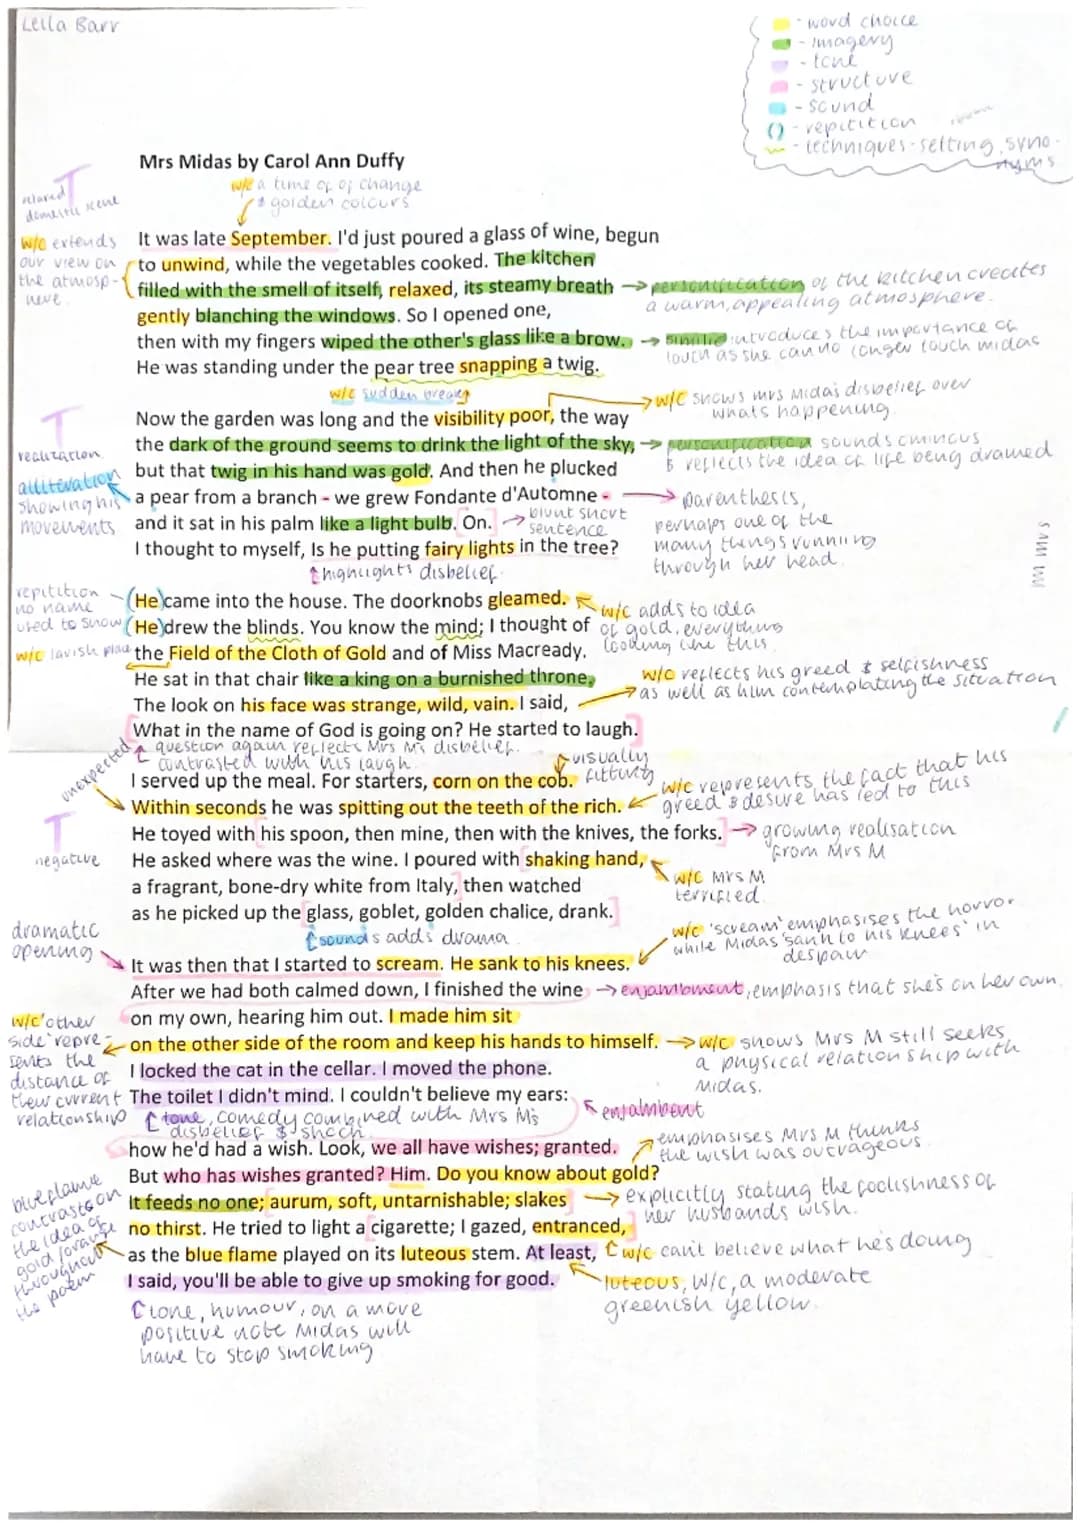 Leila Barr
- word choice
- imagery
- tone
- structure
- sound
() - repitition
- techniques - setting, syno-
nyms
Mrs Midas by Carol Ann Duffy
T
relaxed
domestic scene
w/c a time of of change
& golden colours
w/c extends
our view on
the atmosp-
here.
It was late September. I'd just poured a glass of wine, begun
to unwind, while the vegetables cooked. The kitchen
filled with the smell of itself, relaxed, its steamy breath
gently blanching the windows. So I opened one,
then with my fingers wiped the other's glass like a brow.
He was standing under the pear tree snapping a twig.
→ personification of the kitchen creates
a warm, appealing atmosphere.
→ similie introduces the importance of
touch as she can no longer touch midas
w/c sudden break
→ w/c shows mrs Midas disbelief over
whats happening.
T
realization
Now the garden was long and the visibility poor, the way
the dark of the ground seems to drink the light of the sky,
but that twig in his hand was gold. And then he plucked
a pear from a branch - we grew Fondante d'Automne -
and it sat in his palm like a light bulb. On.
I thought to myself, Is he putting fairy lights in the tree?
→ personification sounds ominous
& reflects the idea of life being drained
alliteration
showing his
movements
→ parenthesis,
perhaps one of the
many things running
through her head.
→ blunt short
sentence
highlights disbelief.
repitition
no name
used to show
w/c lavish place
(He) came into the house. The doorknobs gleamed.
(He) drew the blinds. You know the mind; I thought of
the Field of the Cloth of Gold and of Miss Macready.
He sat in that chair like a king on a burnished throne.
The look on his face was strange, wild, vain. I said,
What in the name of God is going on? He started to laugh.
w/c adds to idea
of gold, everything
looking like this
w/c reflects his greed & selfishness
as well as him contemplating the situation
question again reflects Mrs M's disbelief.
contrasted with his laugh
unexpected
visually
fitting
I served up the meal. For starters, corn on the cob.
Within seconds he was spitting out the teeth of the rich.
He toyed with his spoon, then mine, then with the knives, the forks.
He asked where was the wine. I poured with shaking hand,
a fragrant, bone-dry white from Italy, then watched
as he picked up the glass, goblet, golden chalice, drank.
w/c represents the fact that his
greed & desire has led to this
→ growing realisation
from Mrs M
T
negative
w/c Mrs M
terrified.
sounds adds drama
dramatic
opening
w/c 'scream' emphasises the horror
while Midas 'sank to his knees' in
despair
It was then that I started to scream. He sank to his knees.
After we had both calmed down, I finished the wine
on my own, hearing him out. I made him sit
on the other side of the room and keep his hands to himself.
I locked the cat in the cellar. I moved the phone.
The toilet I didn't mind. I couldn't believe my ears:
→ enjambment, emphasis that she's on her own.
w/c 'other
side' repre-
sents the
distance of
their current
relationship
→ w/c shows Mrs M still seeks
a physical relationship with
Midas.
tone, comedy combined with Mrs M's
disbelief & shock.
enjambent
how he'd had a wish. Look, we all have wishes; granted.
But who has wishes granted? Him. Do you know about gold?
It feeds no one; aurum, soft, untarnishable; slakes
no thirst. He tried to light a cigarette; I gazed, entranced,
as the blue flame played on its luteous stem. At least,
I said, you'll be able to give up smoking for good.
emphasises Mrs M thinks
the wish was outrageous.
→ explicitly stating the foolishness of
her husbands wish.
blue flame
contrasts on
the idea of
gold/orange
throughout
the poem
w/c can't believe what he's doing
luteous, w/c, a moderate
greenish yellow.
tone, humour, on a more
positive note Midas will
have to stop smoking